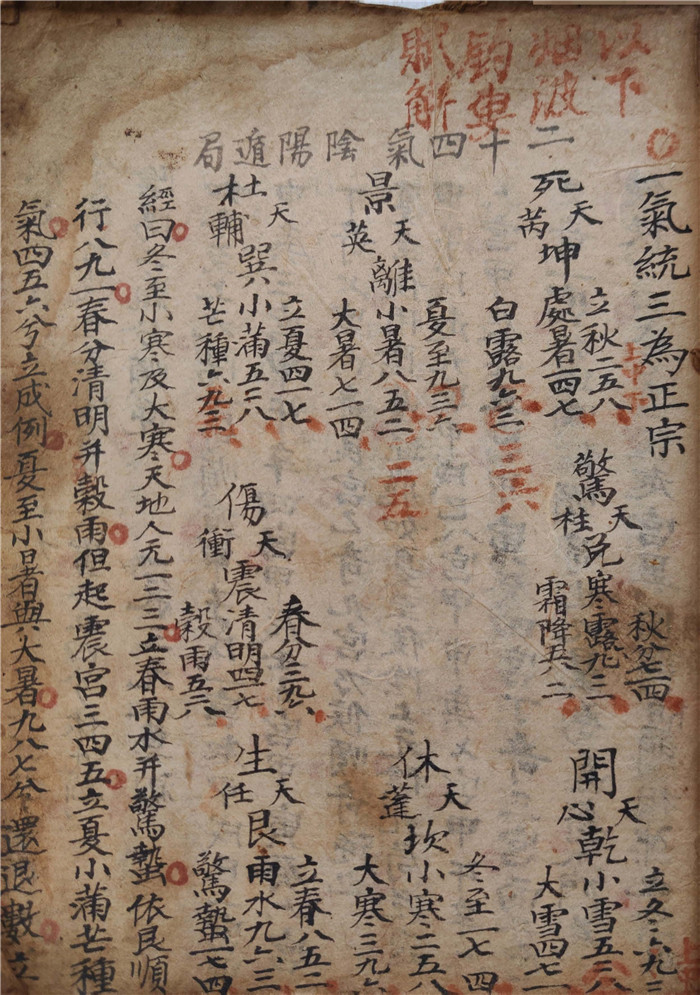 以下
烟波
釣叟
賦解
二十四氣陰陽遁局
一氣統三為正宗
死 天芮 坤
立秋二五八
處暑一四七
白露九六三
三六
驚 天柱 兌
秋分七一四
寒露九三
霜降五八二
開 天心 乾
立冬六九三
小雪五二八
大雪四七一
景 天英 離
夏至九三六
小暑八五二
二五
大暑七一四
休 天蓬 坎
冬至一七四
小寒二五八
大寒三九六
杜 天輔 巽
立夏四一七
小蒲五二八
芒種六九三
傷 天衝 震
春分三九六
清明四一七
穀雨五二八
生 天任 艮
立春八五二
雨水九六三
驚蟄一七四
經曰冬至小寒及大寒天地人元一二三立春雨水并驚蟄依艮順
行八九一春分清明并穀雨但起震宮三四五立夏小蒲芒種
氣四五六兮立成例夏至小暑與大暑九八七兮還退數立